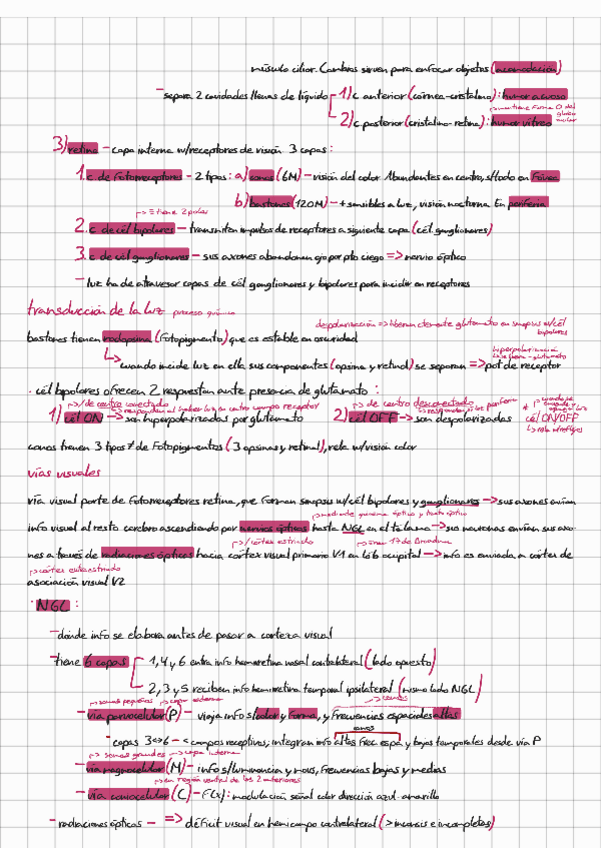 músculo ciliar. Cambios sirven para enfocar objetos (acomodación)
- separa 2 cavidades llenas de líquido 1) c anterior (córnea-cristalino): humor acuoso
→ mantiene forma del globo ocular
2) c posterior (cristalino-retina): humor vítreo
3) retina - capa interna w/receptores de visión 3 capas:
1. c de fotorreceptores - 2 tipos: a) conos (6M) - visión del color Abundantes en centro, s/todo en Fóvea
b) bastones (120M) - + sensibles a luz, visión nocturna En periferia
→ tiene 2 polos
2. c de cél bipolares - transmiten impulsos de receptores a siguiente capa (cél. ganglionares)
3. c de cél ganglionares - sus axones abandonan ojo por pto ciego => nervio óptico
- luz ha de atravesar capas de cél ganglionares y bipolares para incidir en receptores
transducción de la luz proceso químico
despolarización => liberan glutamato en sinapsis w/cél bipolares
bastones tienen rodopsina (fotopigmento) que es estable en oscuridad
hiperpolarización
glutamato
↳ cuando incide luz en ella sus componentes (opsina y retinal) se separan => pot de receptor
· cél bipolares ofrecen 2 respuestas ante presencia de glutamato:
→ de centro conectado
→ responden al haber luz en centro campo receptor
→ de centro desconectado
1) cél ON → son hiperpolarizadas por glutamato 2) cél OFF → son despolarizadas * cél ON/OFF
conos tienen 3 tipos ≠ de fotopigmentos (3 opsinas y retinal), rela w/visión color
vías visuales
vía visual parte de fotorreceptores retina, que forman sinapsis w/cél bipolares y ganglionares → sus axones envían
→ mediante quiasma óptico y tracto óptico
info visual al resto cerebro ascendiendo por nervios ópticos hasta NGL en el tálamo → sus neuronas envían sus axo-
→ córtex estriado → área 17 de Brodmann
nes a través de radiaciones ópticas hacia córtex visual primario V1 en lób occipital → info es enviada a córtex de
→ córtex extraestriado
asociación visual V2
· NGL:
- donde info se elabora antes de pasar a corteza visual
- tiene 6 capas 1, 4 y 6 entra info hemirretina nasal contralateral (lado opuesto)
2, 3 y 5 reciben info hemirretina temporal ipsilateral (mismo lado NGL)
→ somas pequeños → capa externa → conos
- vía parvocelular (P) - viaja info s/color y forma, y frecuencias espaciales altas
conos
· capas 3↔6 - < campos receptivos, integran info altas frec. espa. y bajas temporales desde vía P
→ somas grandes → capa interna
- vía magnocelular (M) - info s/luminancia y movs, frecuencias bajas y medias
→ en región ventral de las 2 anteriores
- vía coniocelular (C) - F(x): modulación señal color dirección azul-amarillo
- radiaciones ópticas - => déficit visual en hemicampo contralateral (> incansis e incompletas)